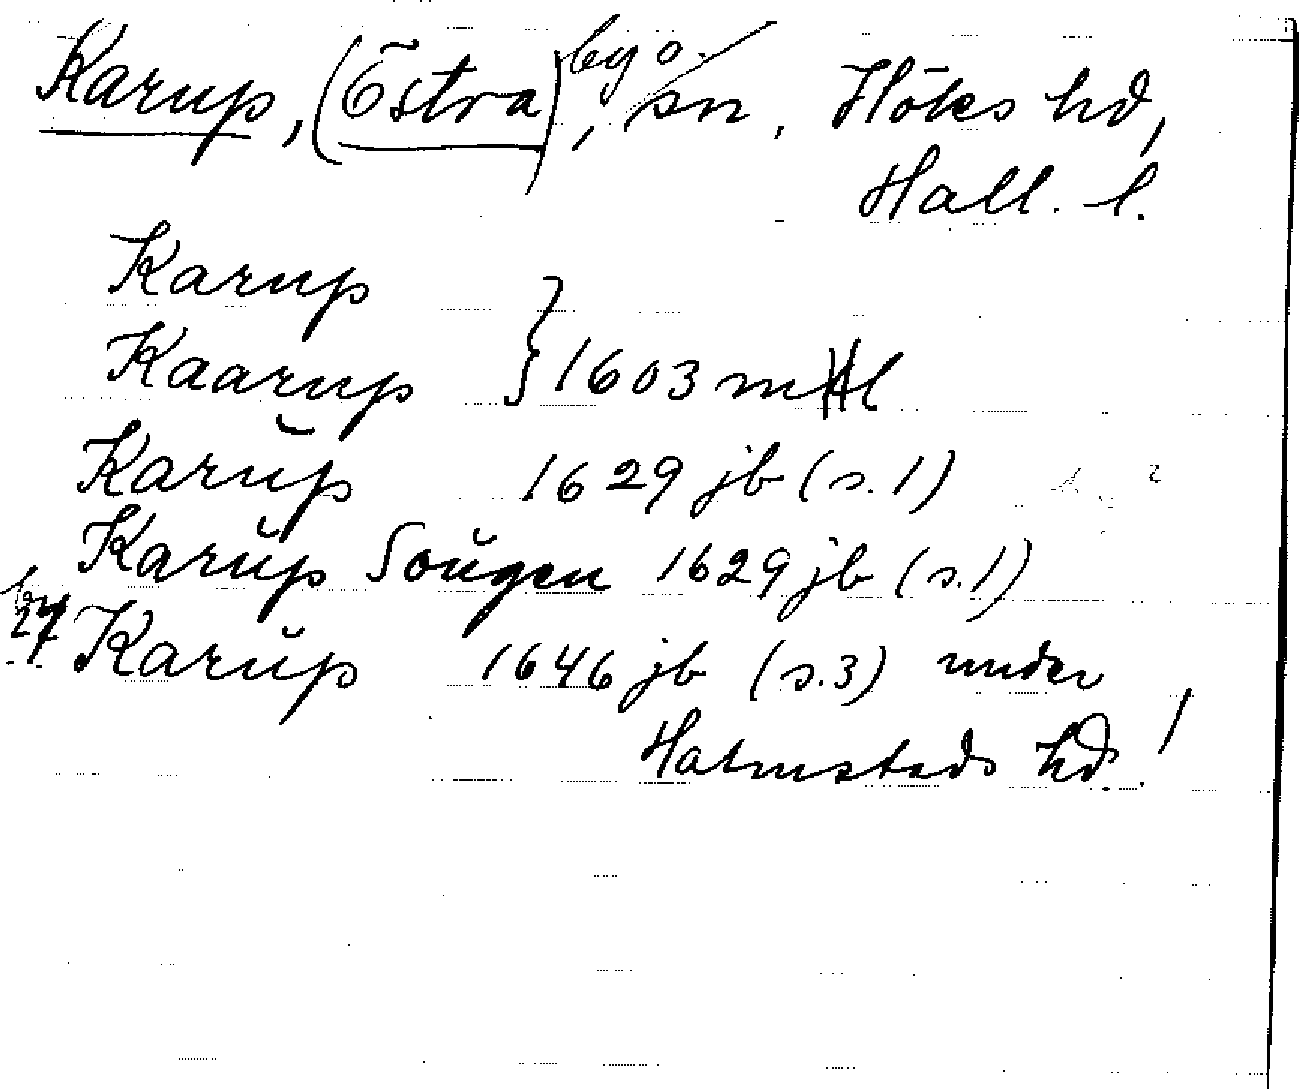 Karup, (Östra), by o. sn, Höks hd,
Hall. l.
Karup
Kaarup } 1603 mHl
Karŭp 1629 jb (s. 1)
Karŭp Soŭgen 1629 jb (s. 1)
by Karŭp 1646 jb (s. 3) under
Halmstads hd!